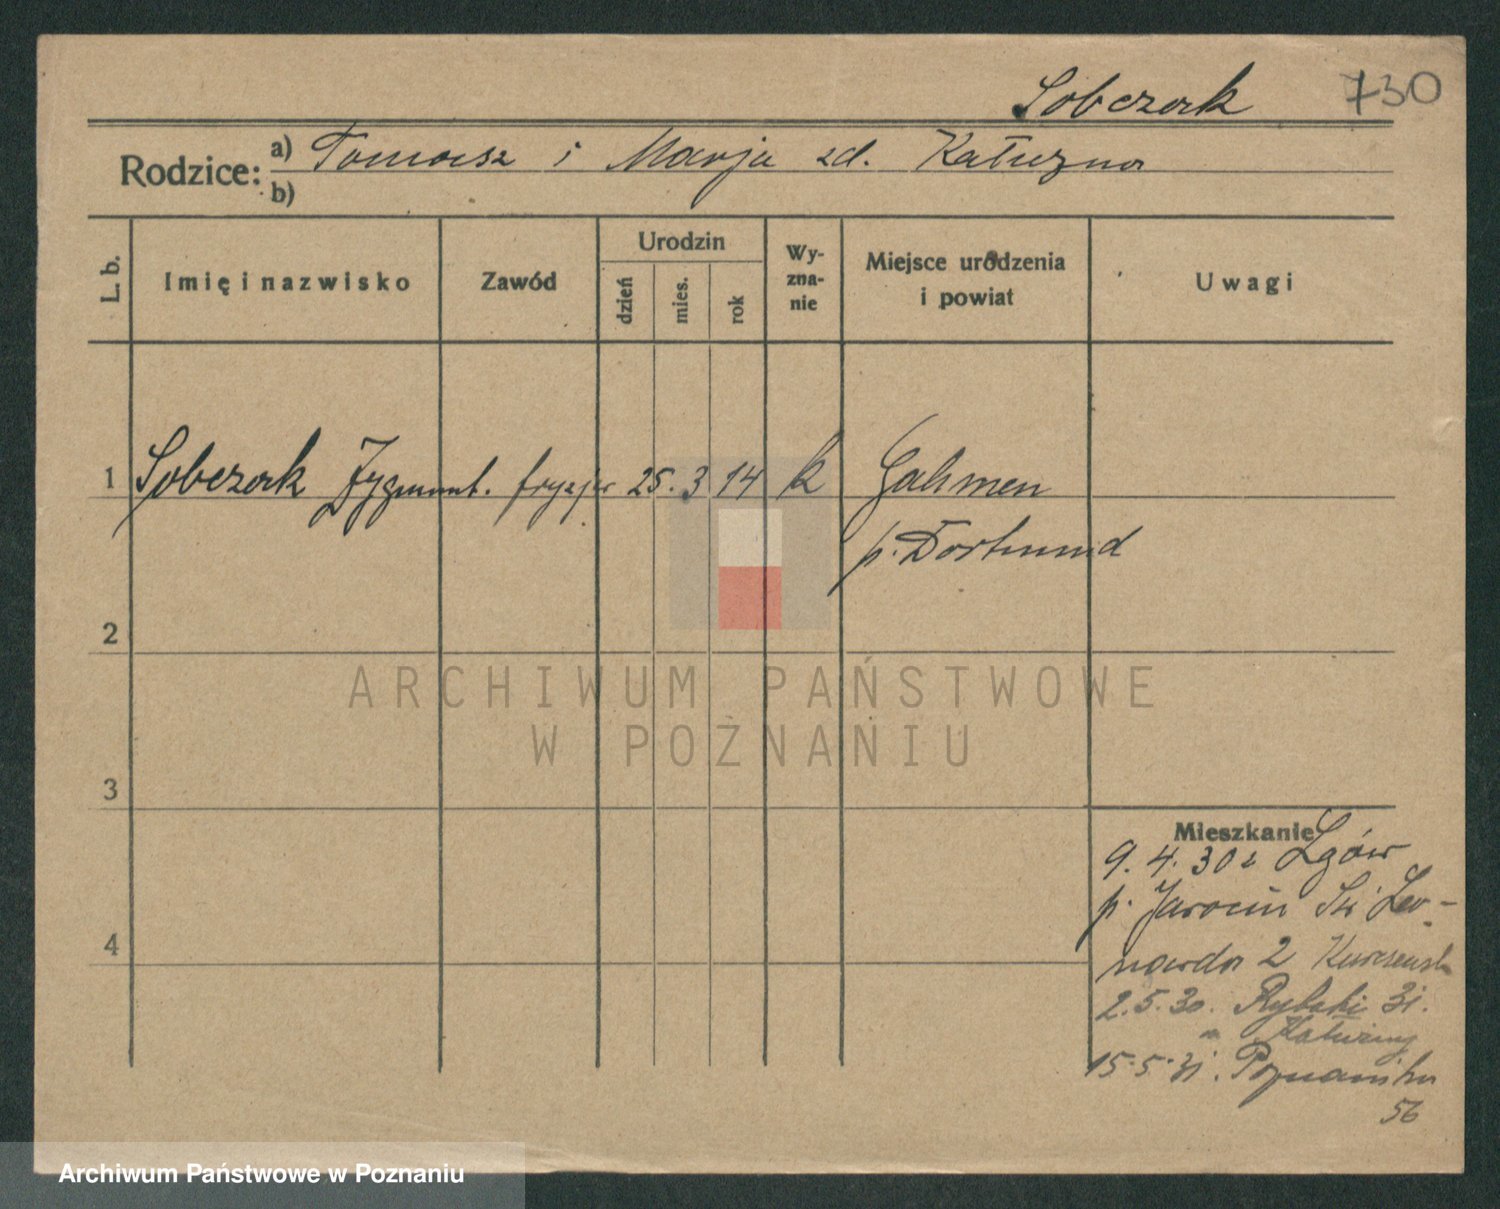 Sobczak 730
Rodzice: a) Tomasz i Marja zd. Kałużna
b)
L. b. Imię i nazwisko Zawód Urodzin dzień mies. rok Wyznanie Miejsce urodzenia i powiat Uwagi
1 Sobczak Zygmunt. fryzjer 25. 3 14 k Gahmen
p. Dortmund
2
ARCHIWUM PAŃSTWOWE
W POZNANIU
3
Mieszkanie
9. 4. 30 z Lgów
p. Jarocin Św Leo-
narda 2
4
2.5.30. Rybaki 31.
Kałużny
15.5.31. Poznańska
56
Archiwum Państwowe w Poznaniu